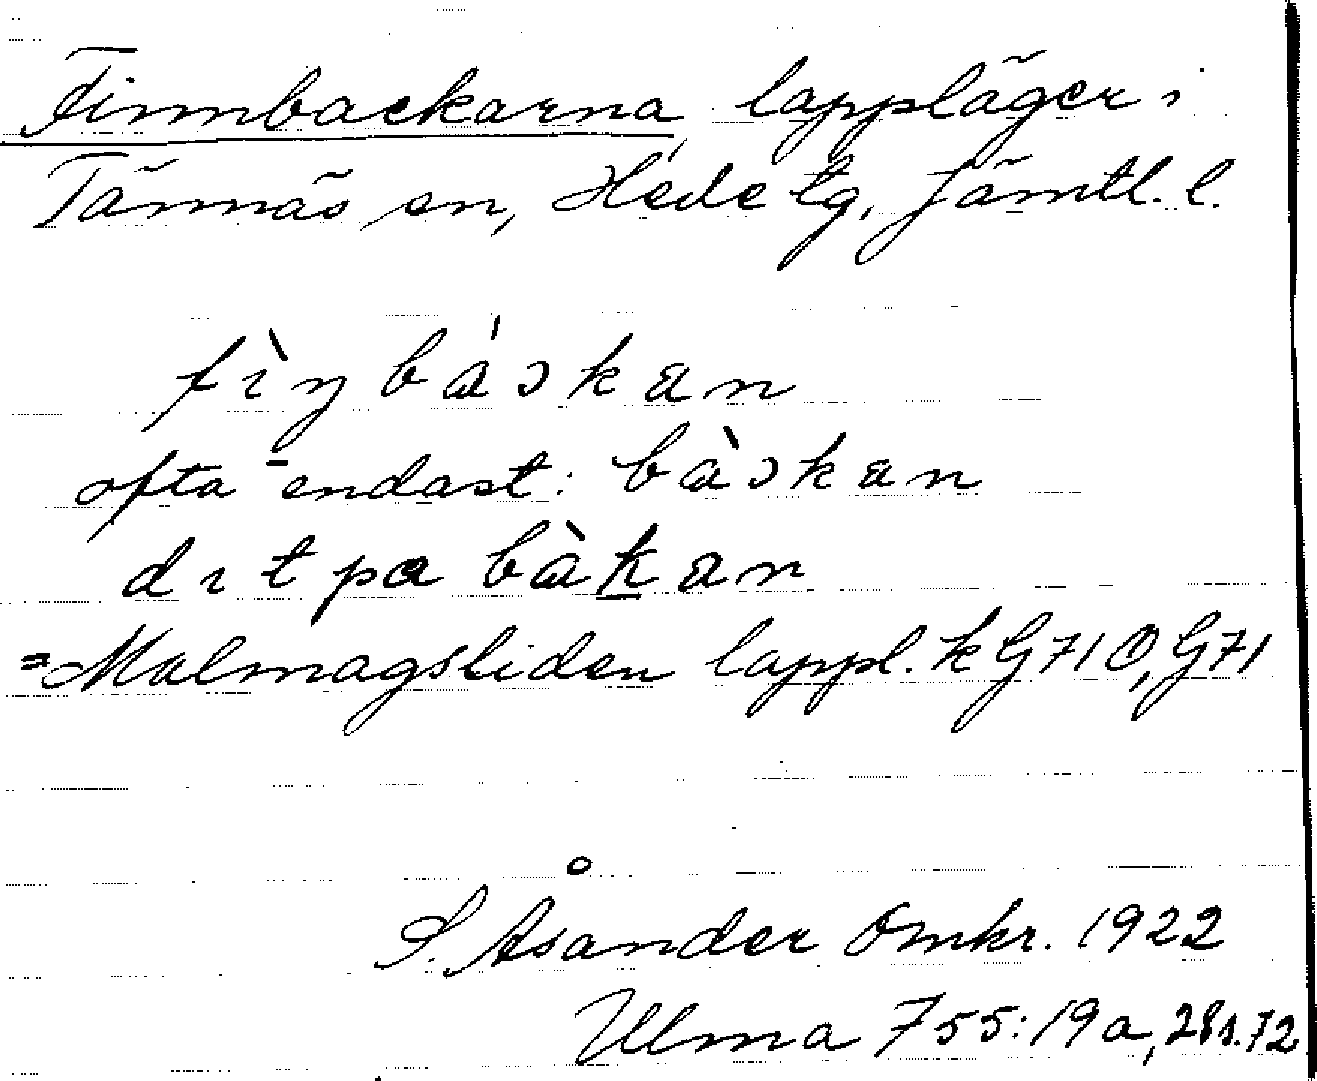 Finnbackarna, lappläger i
Tännäs sn, Hede tg, Jämtl. l.
fìŋbáɔkan
ofta endast: bàɔkan
dıt pa bàkan
=Malmagsliden lappl. k G71O, G71
S. Åsander omkr. 1922
Ulma 755:19a, 28 s. 72